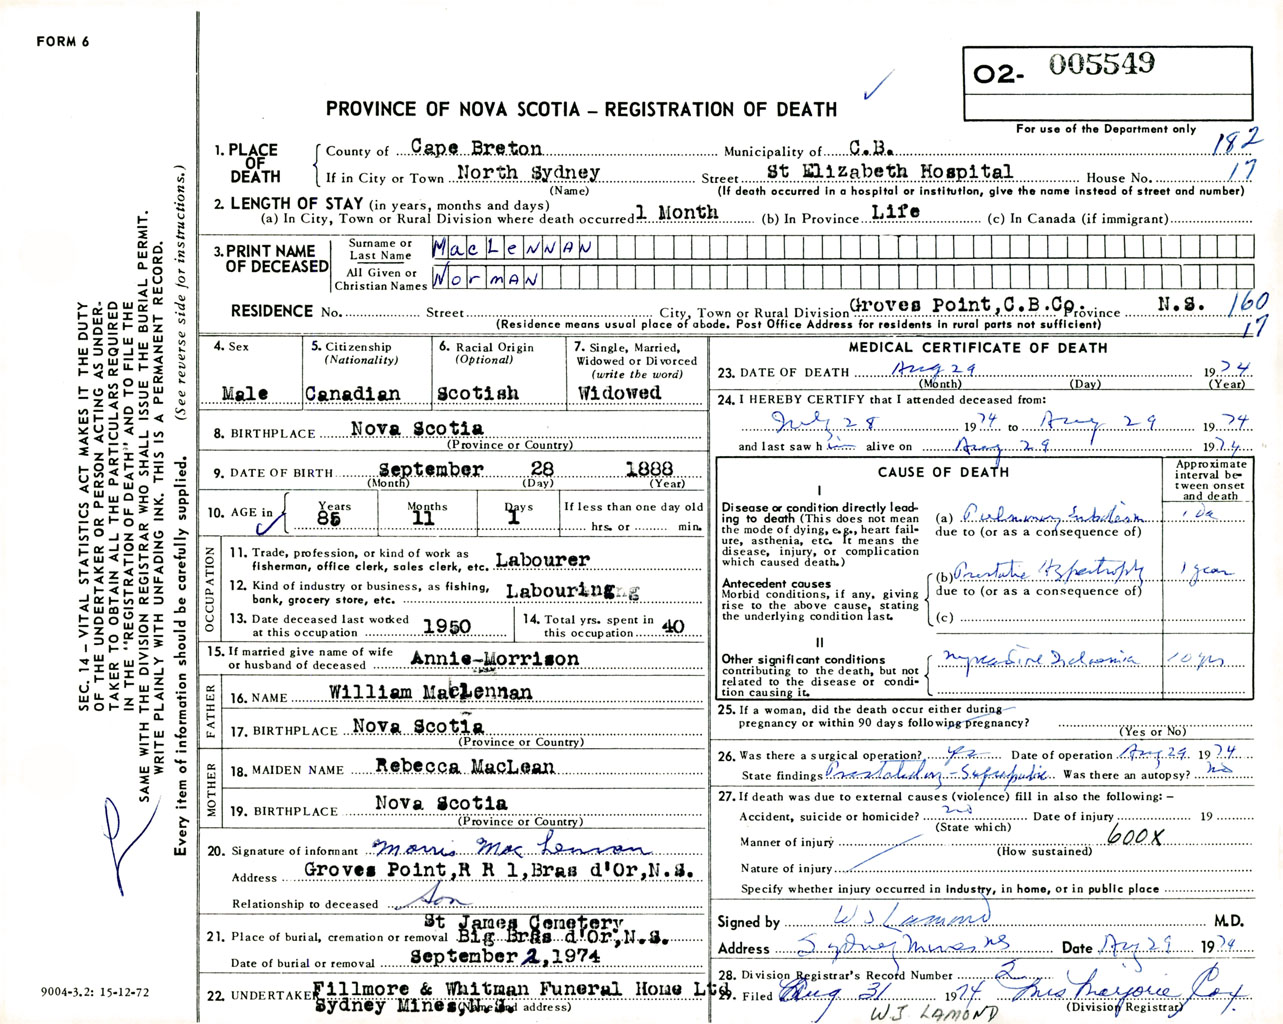 FORM 6
O2- 005549
For use of the Department only
PROVINCE OF NOVA SCOTIA – REGISTRATION OF DEATH
182
17
1. PLACE OF DEATH
County of Cape Breton Municipality of C.B.
If in City or Town North Sydney Street St Elizabeth Hospital House No.
(Name) (If death occurred in a hospital or institution, give the name instead of street and number)
2. LENGTH OF STAY (in years, months and days)
(a) In City, Town or Rural Division where death occurred 1 Month (b) In Province Life (c) In Canada (if immigrant)
3. PRINT NAME OF DECEASED
Surname or Last Name MacLeNNAN
All Given or Christian Names NorMAN
RESIDENCE No. Street City, Town or Rural Division Groves Point, C.B.Co. Province N.S.
160
17
(Residence means usual place of abode. Post Office Address for residents in rural parts not sufficient)
4. Sex
Male
5. Citizenship
(Nationality)
Canadian
6. Racial Origin
(Optional)
Scotish
7. Single, Married,
Widowed or Divorced
(write the word)
Widowed
8. BIRTHPLACE Nova Scotia
(Province or Country)
9. DATE OF BIRTH September 28 1888
(Month) (Day) (Year)
10. AGE in Years 85 Months 11 Days 1
If less than one day old
hrs. or min.
OCCUPATION
11. Trade, profession, or kind of work as
fisherman, office clerk, sales clerk, etc. Labourer
12. Kind of industry or business, as fishing,
bank, grocery store, etc. Labouring
13. Date deceased last worked
at this occupation 1950
14. Total yrs. spent in
this occupation 40
15. If married give name of wife
or husband of deceased Annie-Morrison
FATHER
16. NAME William MacLennan
17. BIRTHPLACE Nova Scotia
(Province or Country)
MOTHER
18. MAIDEN NAME Rebecca MacLean
19. BIRTHPLACE Nova Scotia
(Province or Country)
20. Signature of informant Morris MacLennan
Address Groves Point, R R 1, Bras d'Or, N.S.
Relationship to deceased Son
St James Cemetery
21. Place of burial, cremation or removal Big Bras d'Or, N.S.
Date of burial or removal September 2, 1974
22. UNDERTAKER Fillmore & Whitman Funeral Home Ltd
Sydney Mines, N.S.
(Name and address)
MEDICAL CERTIFICATE OF DEATH
23. DATE OF DEATH Aug 29 1974
(Month) (Day) (Year)
24. I HEREBY CERTIFY that I attended deceased from:
July 28 1974 to Aug 29 1974
and last saw him alive on Aug 29 1974
CAUSE OF DEATH
Approximate interval between onset and death
I
Disease or condition directly leading to death (This does not mean
the mode of dying, e.g., heart failure, asthenia, etc. It means the
disease, injury, or complication
which caused death.)
(a) Pulmonary Embolism 1 da
due to (or as a consequence of)
Antecedent causes
Morbid conditions, if any, giving
rise to the above cause, stating
the underlying condition last.
(b) Prostatic Hypertrophy 1 year
due to (or as a consequence of)
(c)
II
Other significant conditions
contributing to the death, but not
related to the disease or condition causing it.
10 yrs
25. If a woman, did the death occur either during
pregnancy or within 90 days following pregnancy?
(Yes or No)
26. Was there a surgical operation? yes Date of operation Aug 29 1974
State findings Prostatectomy - Suprapubic Was there an autopsy? no
27. If death was due to external causes (violence) fill in also the following: –
Accident, suicide or homicide? no Date of injury 19
(State which)
Manner of injury 600X
(How sustained)
Nature of injury
Specify whether injury occurred in Industry, in home, or in public place
Signed by W J Lamond M.D.
Address Sydney Mines NS Date Aug 29 1974
28. Division Registrar's Record Number 2
29. Filed Aug 31 1974 Mrs Marjorie Cox
(Division Registrar)
WJ LAMOND
SEC. 14 – VITAL STATISTICS ACT MAKES IT THE DUTY
OF THE UNDERTAKER OR PERSON ACTING AS UNDERTAKER TO OBTAIN ALL THE PARTICULARS REQUIRED
IN THE "REGISTRATION OF DEATH" AND TO FILE THE
SAME WITH THE DIVISION REGISTRAR WHO SHALL ISSUE THE BURIAL PERMIT.
WRITE PLAINLY WITH UNFADING INK. THIS IS A PERMANENT RECORD.
Every item of information should be carefully supplied. (See reverse side for instructions.)
9004-3.2: 15-12-72